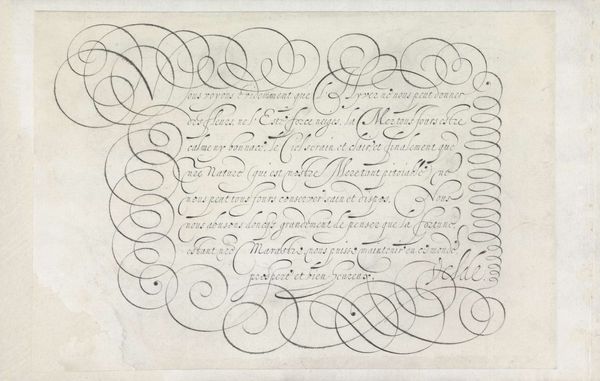 Nous voyons evidemment que l'Hyver ne nous peut donner
des fleurs, ne l'Esté force neiges, la Mer tousjours estre
calme ny bonnace, le Ciel serain et clair, et finalement que
nre Nature (qui est nostre Mere tant pitoiable) ne
nous peut tousjours conserver sain et dispos, Nous
nous abusons doncq grandement de penser que la fortune
estant nre Marastre, nous puisse maintenir en ce monde
prospere et bien heureux.
Velde.